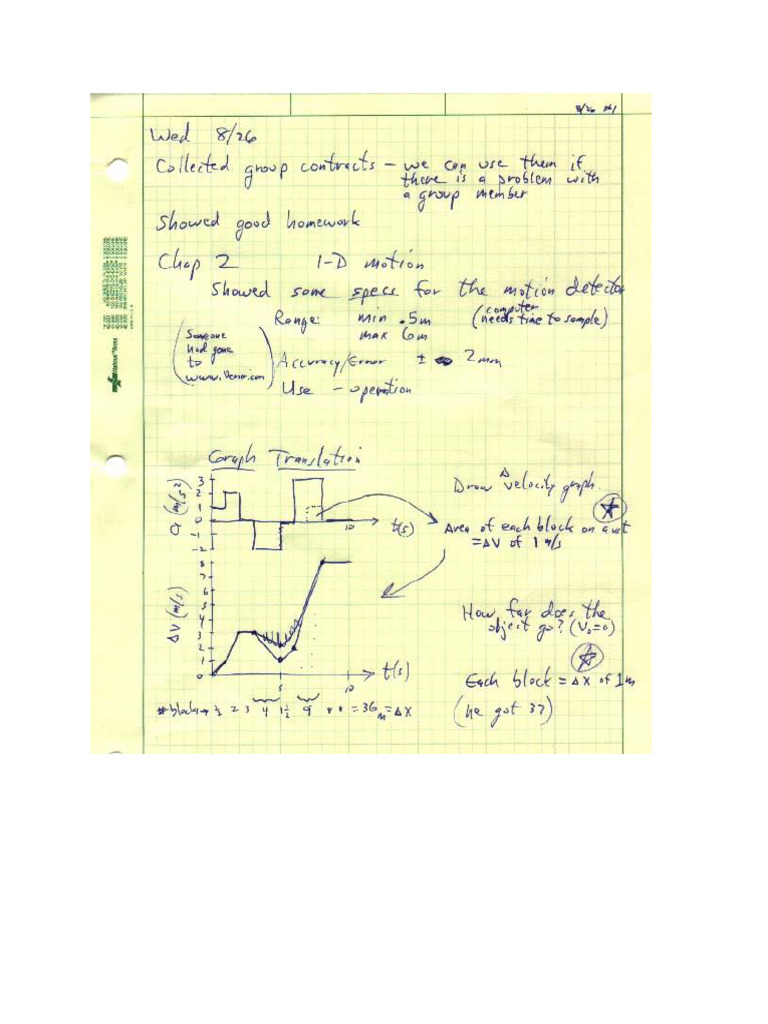 8/26 #1
Wed 8/26
Collected group contracts – we can use them if
there is a problem with
a group member
Showed good homework
Chap 2 1-D motion
Showed some specs for the motion detector
Range: min .5m (computer needs time to sample)
max 6m
(Someone
had gone
to
www.Vernier.com)
Accuracy/Error ± 2mm
Use – operation
Graph Translation
Draw Δ velocity graph.
a (m/s²)
3
2
1
0
-1
-2
10
t(s)
Area of each block on a vs t
= ΔV of 1 m/s
ΔV (m/s)
8
7
6
5
4
3
2
1
0
5
10
t(s)
How far does the
object go? (V₀=0)
Each block = Δx of 1m
(he got 37)
# blocks → ½ 2 3 4 1½ 9 8 8 = 36 m = Δx